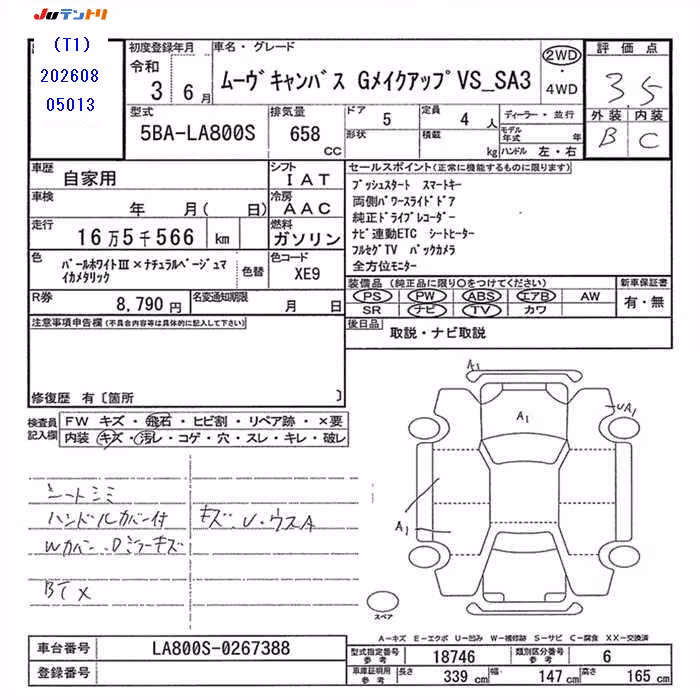 JUテントリ
(T1)
202608
05013
初度登録年月
令和
3 6月
車名・グレード
ムーヴキャンバス GメイクアップVS_SA3
2WD
・
4WD
評価点
3.5
外装 内装
B C
型式
5BA-LA800S
排気量
658
cc
ドア
5
形状
定員
4 人
積載
kg
ディーラー・並行
モデル年式 年
ハンドル 左・右
車歴
自家用
シフト
IAT
車検
年 月( 日)
冷房
AAC
走行
16万5千566 km
燃料
ガソリン
色
パールホワイトⅢ×ナチュラルベージュマイカメタリック
色替
色コード
XE9
R券
8,790 円
名変通知期限
月 日
セールスポイント(正常に機能するものに限ります)
プッシュスタート スマートキー
両側パワースライドドア
純正ドライブレコーダー
ナビ連動ETC シートヒーター
フルセグTV バックカメラ
全方位モニター
装備品 (純正品に限り○をつけてください)
PS PW ABS エアB AW
SR ナビ TV カワ
新車保証書
有・無
後日品
取説・ナビ取説
注意事項申告欄(不具合内容等は具体的に記入して下さい)
修復歴 有〔箇所 〕
検査員記入欄
FW キズ・飛石・ヒビ割・リペア跡・×要
内装 キズ・汚レ・コゲ・穴・スレ・キレ・破レ
シートシミ
ハンドルカバー付
キズ、U・ウスA
Wカバー、Dミラーキズ
BTX
A1
UA1
A1
スペア
A-キズ E-エクボ U-凹み W-補修跡 S-サビ C-腐食 XX-交換済
車台番号
LA800S-0267388
登録番号
型式指定番号 参考
18746
類別区分番号 参考
6
車庫証明用 参考
長さ 339 cm 幅 147 cm 高さ 165 cm